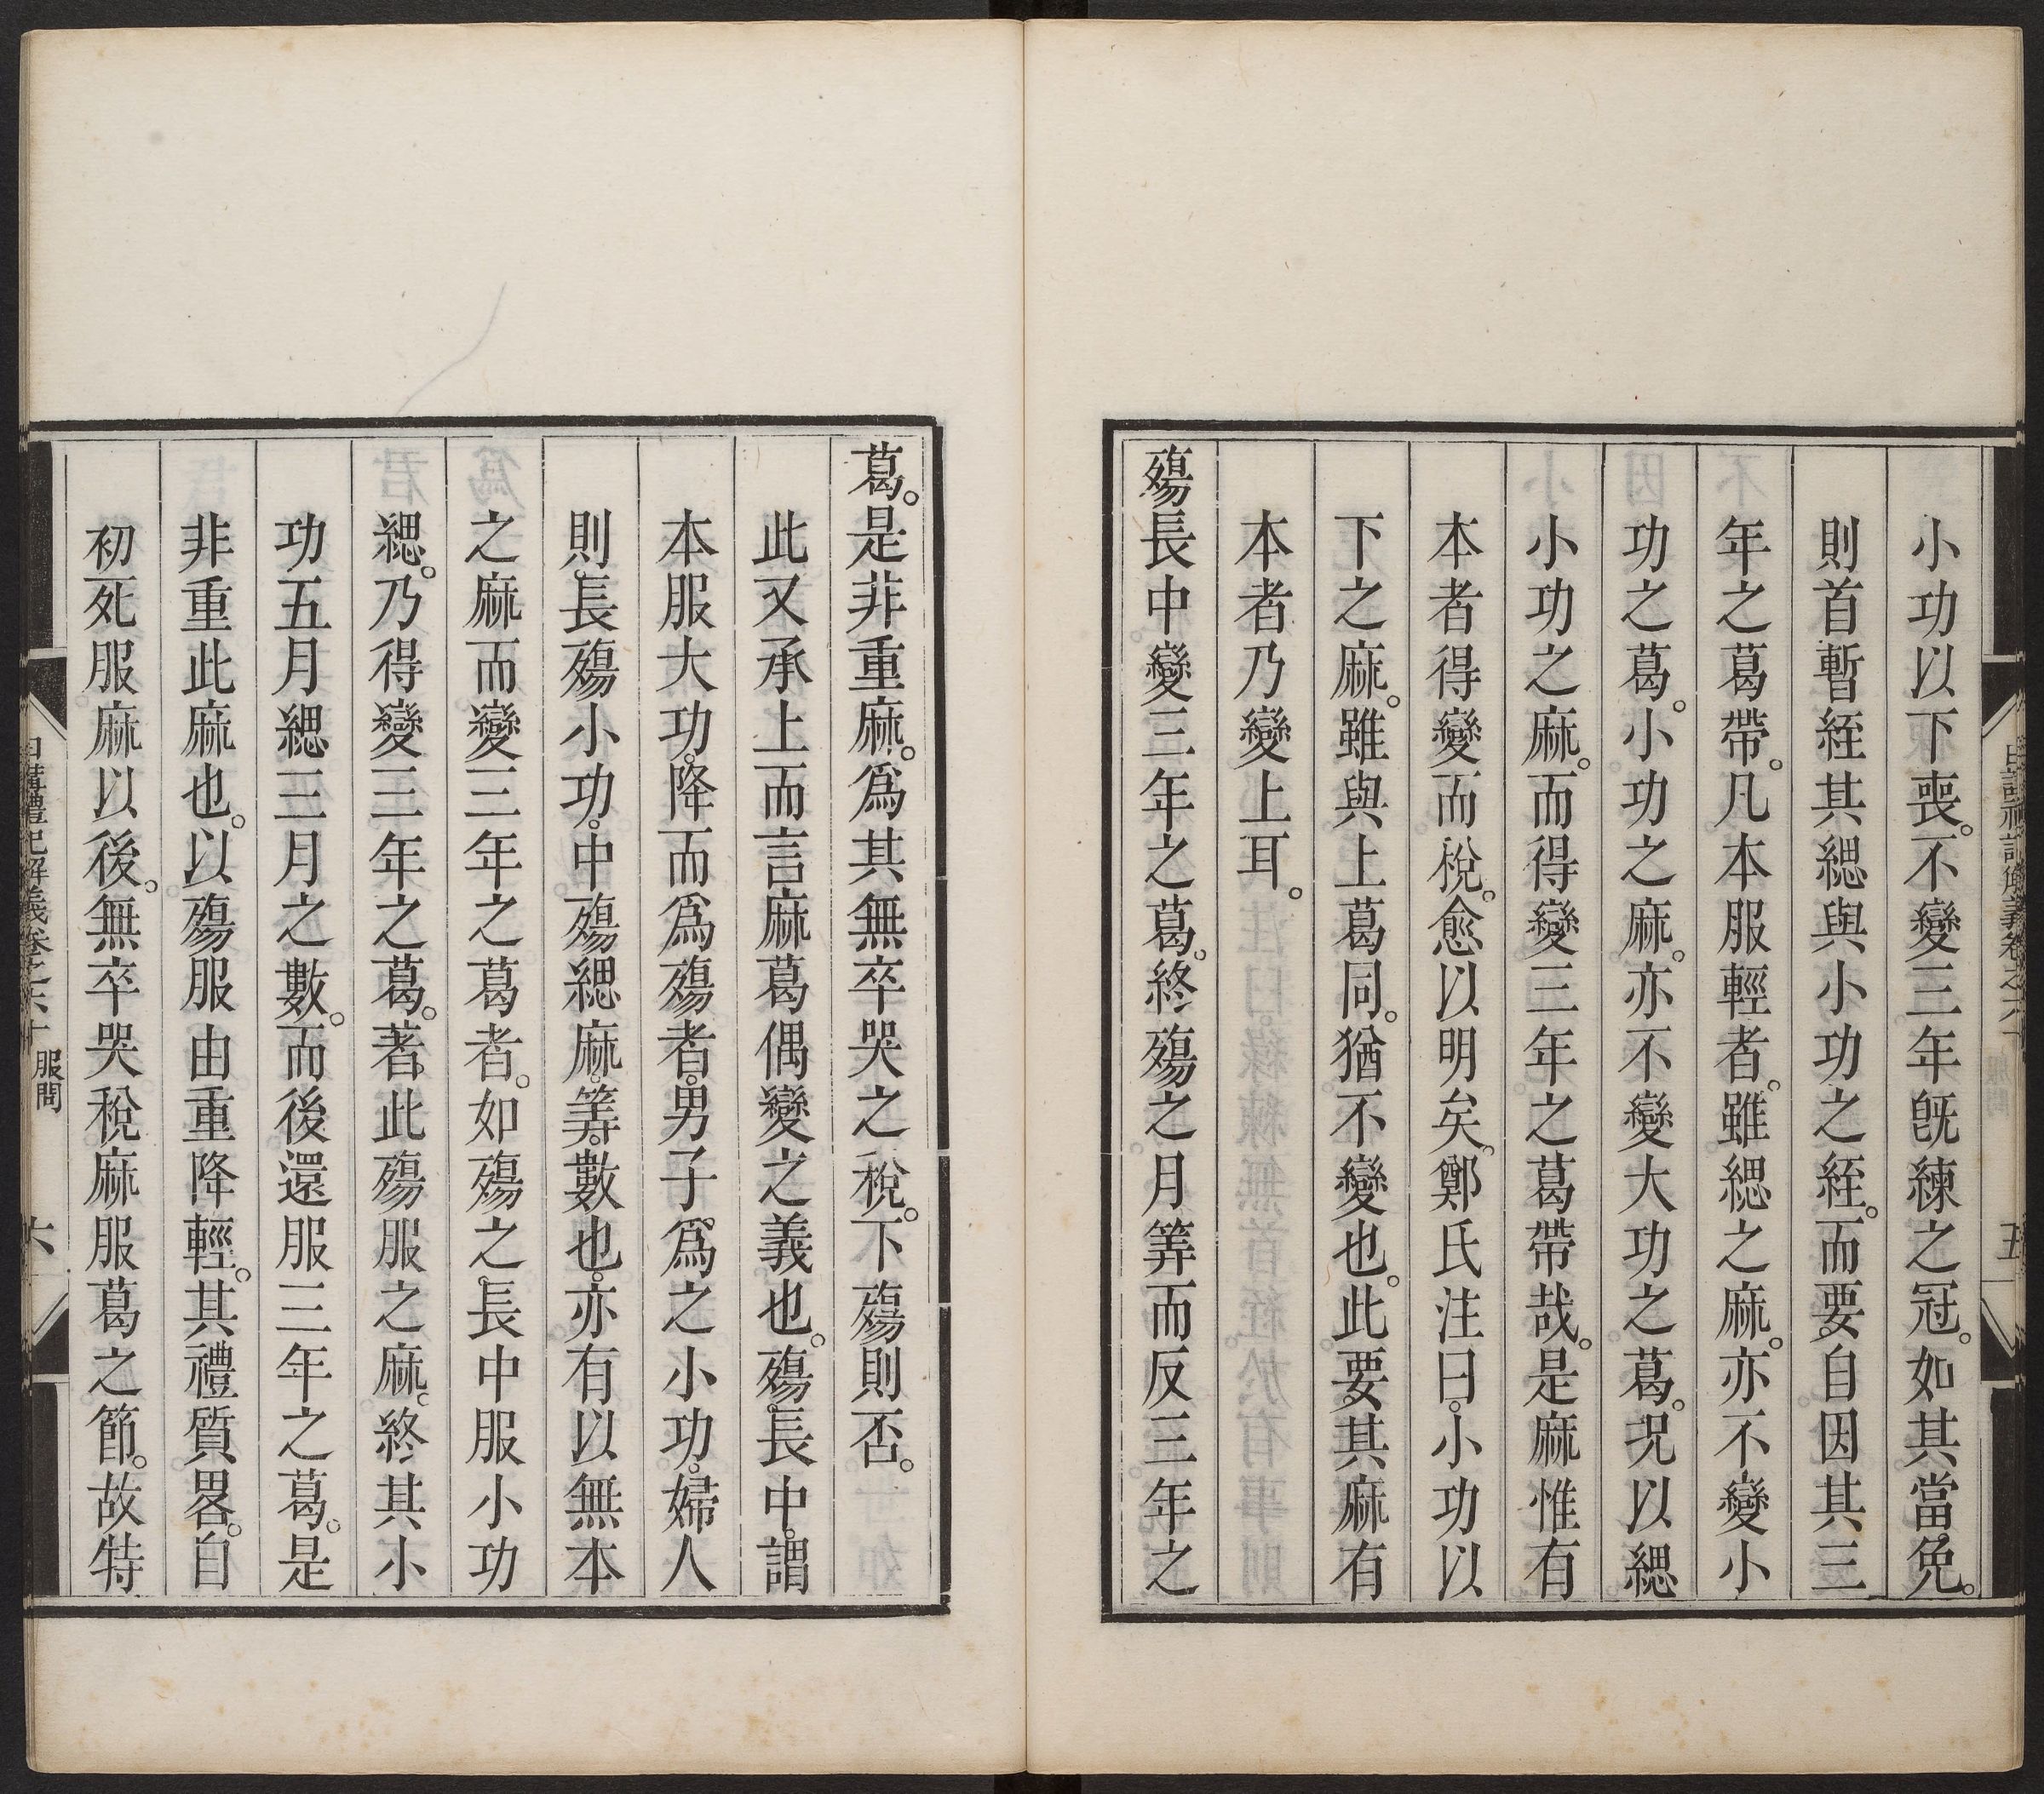 小功以下喪。不變三年旣練之冠。如其當免。
則首暫絰其緦與小功之絰。而要自因其三
年之葛帶。凡本服輕者。雖緦之麻。亦不變小
功之葛。小功之麻。亦不變大功之葛。況以緦
小功之麻。而得變三年之葛帶哉。是麻惟有
本者得變而稅。愈以明矣。鄭氏注曰。小功以
下之麻。雖與上葛同。猶不變也。此要其麻有
本者乃變上耳。
殤長中變三年之葛。終殤之月筭而反三年之
日講禮記解義卷之六十 服問 五
葛。是非重麻。爲其無卒哭之稅。下殤則否。
此又承上而言麻葛偶變之義也。殤。長中。謂
本服大功。降而爲殤者。男子爲之小功。婦人
則長殤小功。中殤緦麻。筭。數也。亦有以無本
之麻而變三年之葛者。如殤之長中服小功
緦。乃得變三年之葛。著此殤服之麻。終其小
功五月緦三月之數。而後還服三年之葛。是
非重此麻也。以殤服由重降輕。其禮質畧。自
初死服麻以後。無卒哭稅麻服葛之節。故特
日講禮記解義卷之六十 服問 六